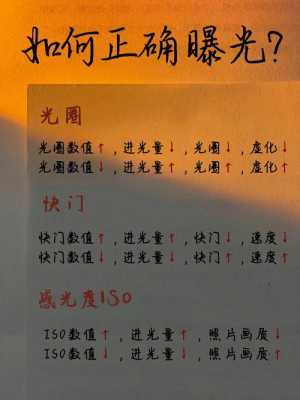 如何正确曝光?
光圈
光圈数值↑,进光量↓,光圈↓,虚化↓
光圈数值↓,进光量↑,光圈↑,虚化↑
快门
快门数值↑,进光量↑,快门↓,速度↓
快门数值↓,进光量↓,快门↑,速度↑
感光度ISO
ISO数值↑,进光量↑,照片画质↓
ISO数值↓,进光量↓,照片画质↑